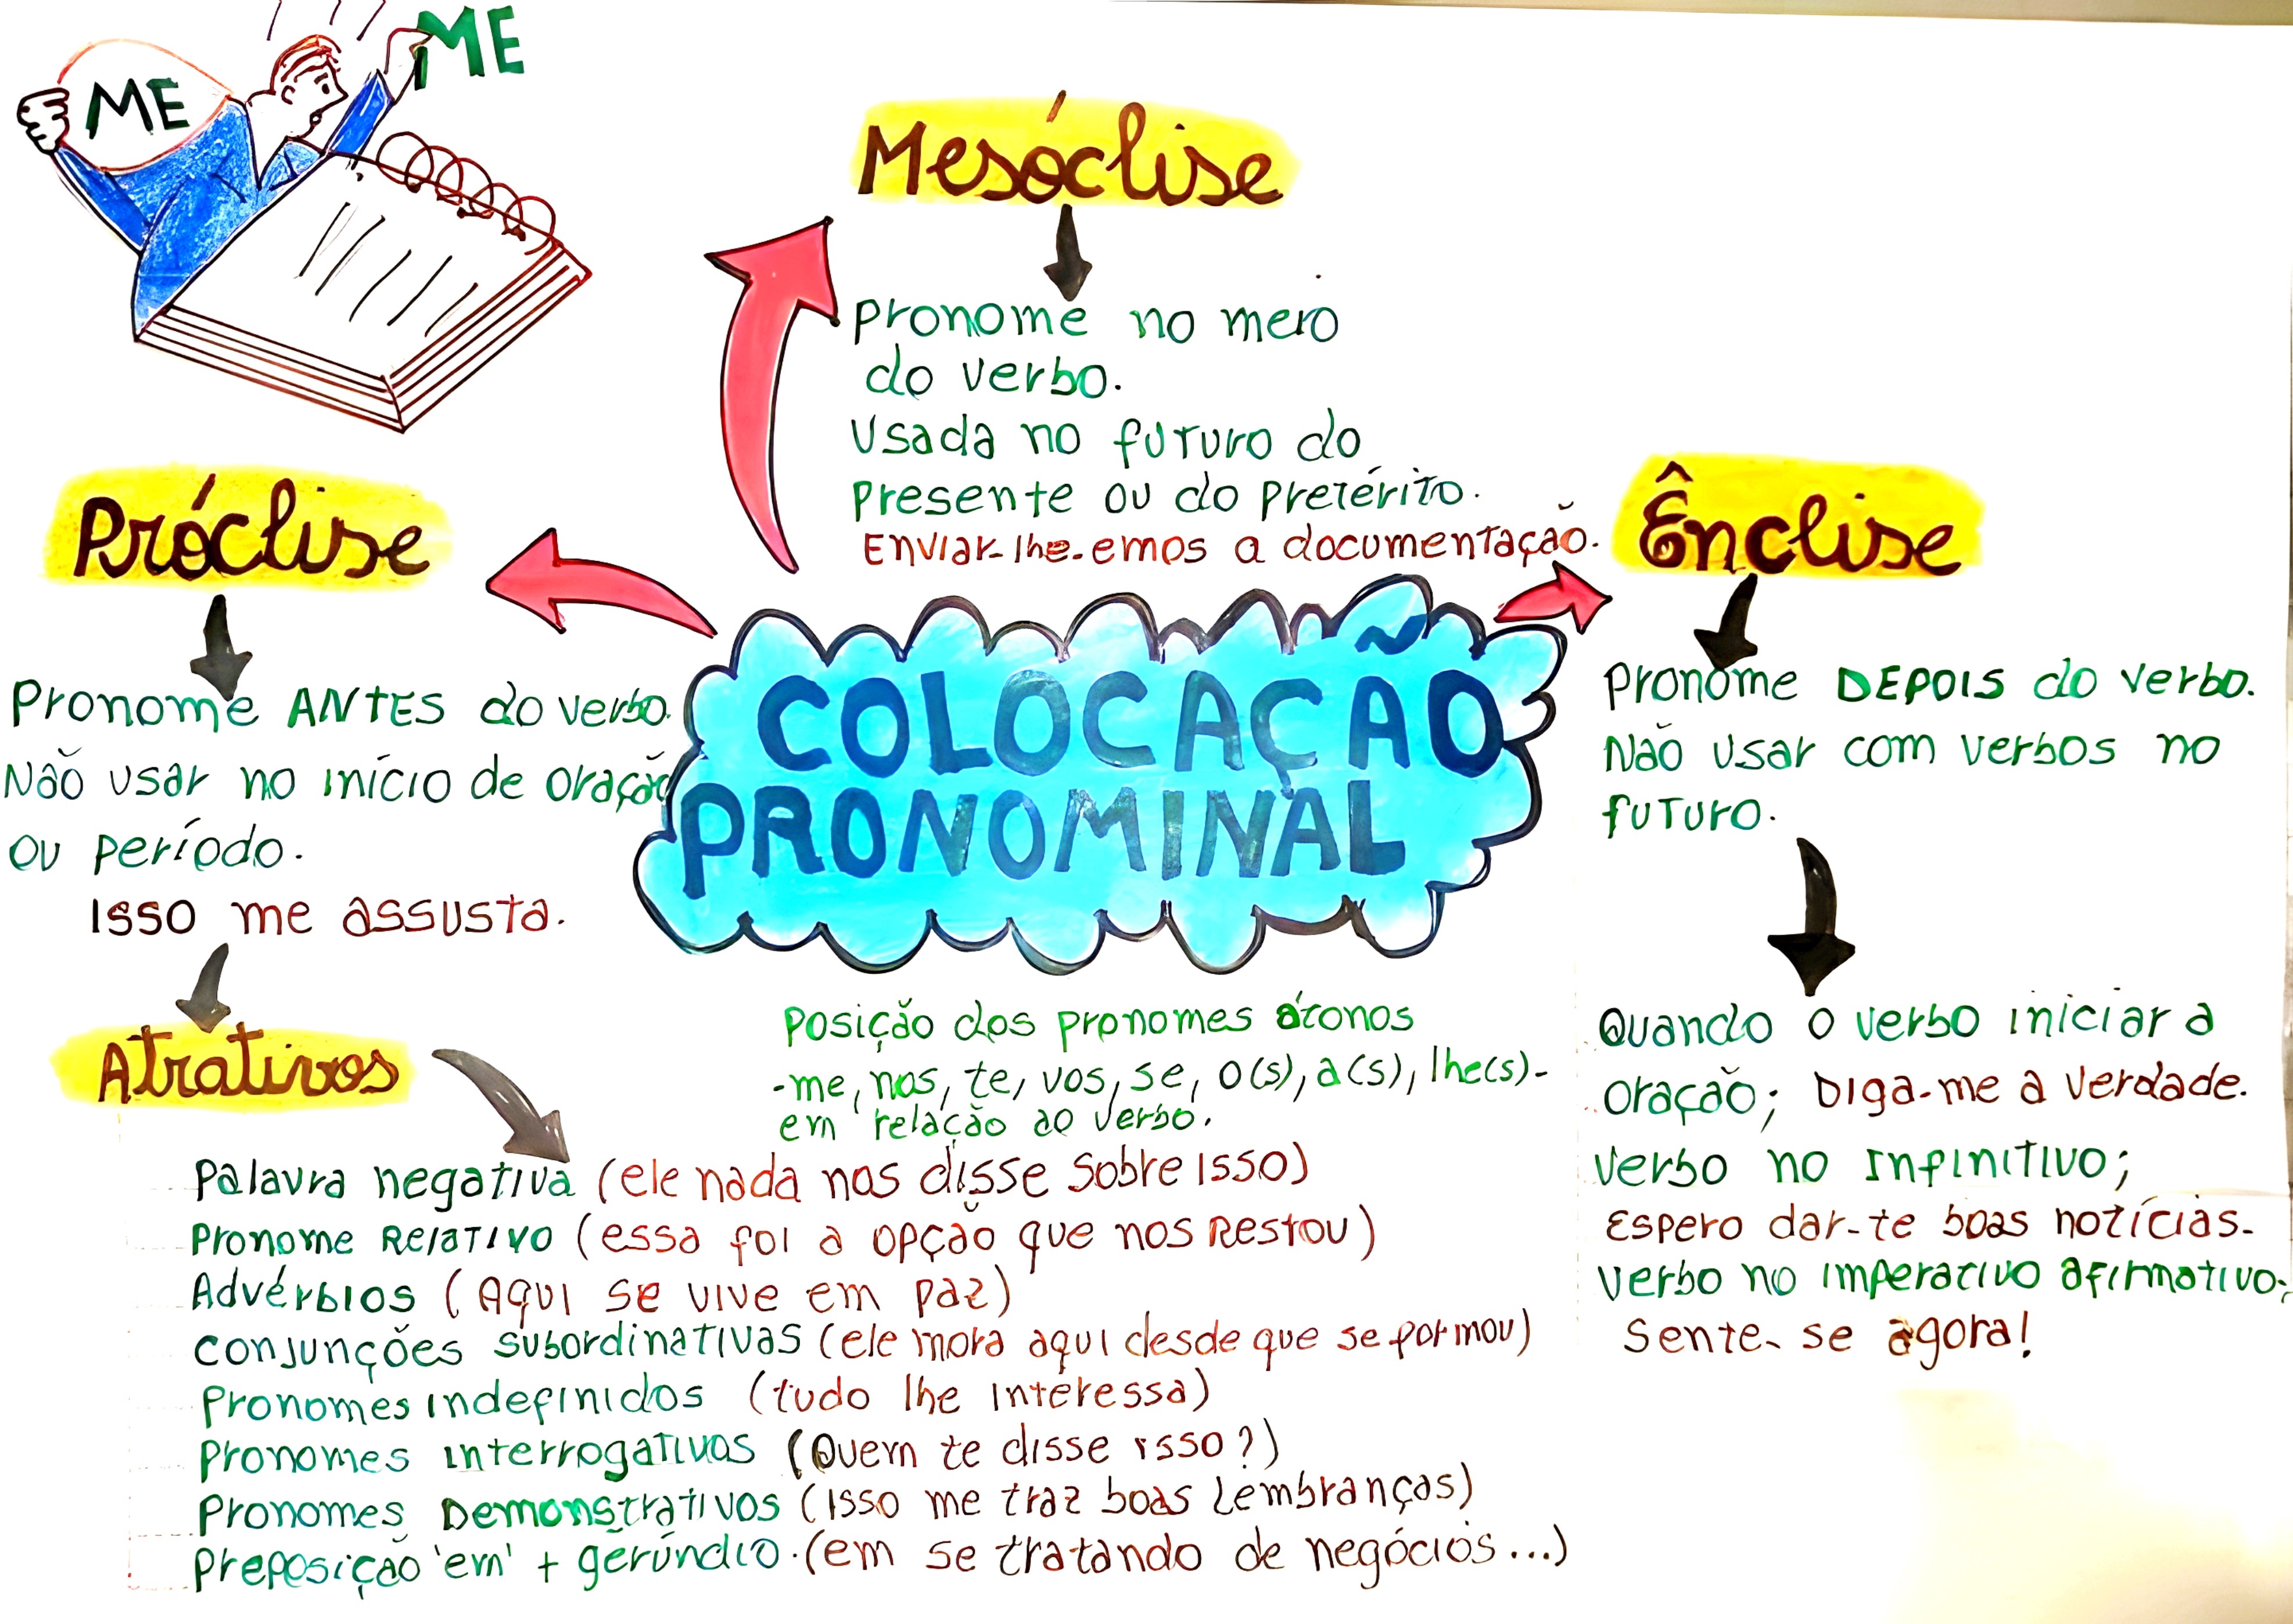 ME
ME
Mesóclise
Pronome no meio
do verbo.
Usada no futuro do
presente ou do pretérito.
Enviar-lhe-emos a documentação.
Próclise
Pronome ANTES do verbo.
Não usar no início de oração
ou período.
Isso me assusta.
Ênclise
Pronome DEPOIS do verbo.
Não usar com verbos no
futuro.
COLOCAÇÃO
PRONOMINAL
Posição dos pronomes átonos
-me, nos, te, vos, se, o(s), a(s), lhe(s)-
em relação ao verbo.
Quando o verbo iniciar a
oração; Diga-me a verdade.
verbo no Infinitivo;
Espero dar-te boas notícias.
verbo no imperativo afirmativo;
Sente-se agora!
Atrativos
Palavra negativa (ele nada nos disse sobre isso)
Pronome Relativo (essa foi a opção que nos Restou)
Advérbios (Aqui se vive em paz)
conjunções subordinativas (ele mora aqui desde que se formou)
Pronomes indefinidos (tudo lhe interessa)
Pronomes interrogativos (Quem te disse isso?)
Pronomes Demonstrativos (Isso me traz boas Lembranças)
Preposição 'em' + gerúndio. (em se tratando de negócios...)